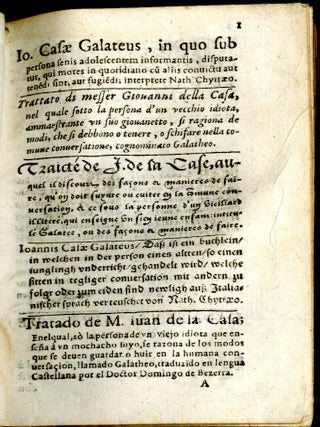 1
Io. Casæ Galateus, in quo sub
persona senis adolescentem informantis, disputa-
tur, qui mores in quotidiano cū aliis convictu aut
tenēdi sint, aut fugiēdi: interprete Nath Chytræo.
Trattato di messer Giovanni della Casa,
nel quale sotto la persona d'un vecchio idiota,
ammaestrante vn suo giouanetto, si ragiona de
modi, che si debbono o tenere, o schifare nella co-
mune conuersatione, cognominato Galatheo.
Traicté de J. de la Case, au-
quel il discourt des façons & manieres de fai-
re, qu'on doit suyure ou euiter en la cōmune con-
uersation, & ce sous la personne d'un Vieillard
illitere, qui enseigne vn sien ieune enfam: intitu-
lé Galatee, ou des façons & manieres de faire.
Ioannis Casæ Galateus/ Daß ist ein buchlein/
in welchen in der person eines altten/ so einen
iunglingh vnderricht/ gehandelt wird/ welche
sitten in tegliger conversation mit andern zu
folgr oder zum eiden sind newligh auß Italia-
nischer sprach verteuschet von Nath. Chytræo.
Tratado de M. Iuan de la Casa;
Enel qual, sò la persona de vn viejo idiota que en-
seña à vn mochacho suyo, se razona de los modos
que se deuen guardar o huir en la humana con-
uersacion, llamado Galatheo, traduzido en lengua
Castellana por el Doctor Domingo de Bezerra.
A